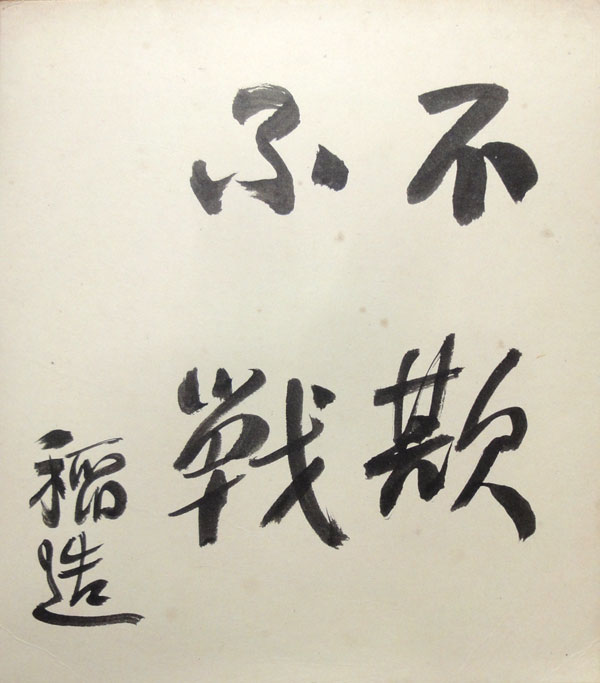 不欺
不戦
稲造